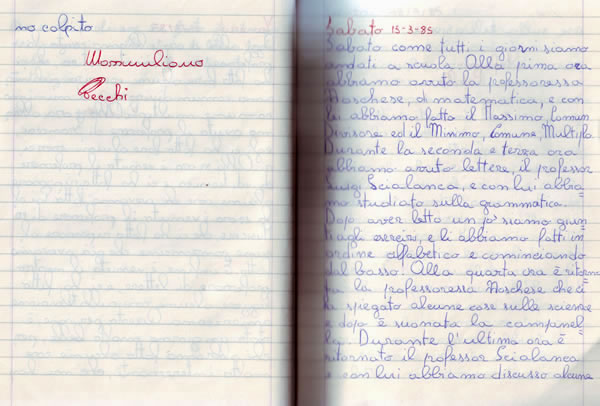 no colpito
Massimiliano
Becchi
Sabato 15-3-85
Sabato come tutti i giorni siamo
andati a scuola. Alla prima ora
abbiamo avuto la professoressa
Moschese, di matematica, e con
lei abbiamo fatto il Massimo, Comun
Divisore ed il Minimo, Comune, Multiplo.
Durante la seconda e terza ora
abbiamo avuto lettere, il professor
Luigi Scialanca, e con lui abbia=
mo studiato sulla grammatica.
Dopo aver letto un po' siamo giun=
ti agli esercizi, e li abbiamo fatti in
ordine alfabetico e cominciando
dal basso! Alla quarta ora è ritorna=
ta la professoressa Moschese che ci
ha spiegato alcune cose sulle scienze
e dopo è suonata la campanel=
la. Durante l'ultima ora è
ritornato il professor Scialanca
e con lui abbiamo discusso alcune